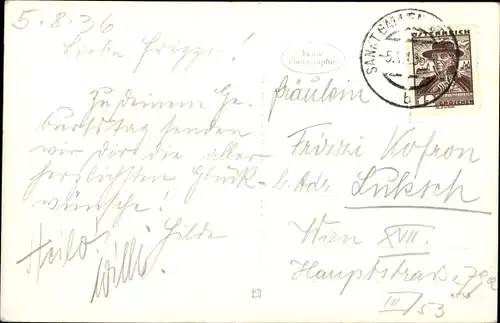 5.8.36
Liebe Frizzi!
Zu deinem Ge-
burtstag senden
wir dir die aller
herzlichsten Glück-
wünsche!
Hilde
Heilo!
Willi.
Echte
Photographie
SANKT GALLEN
ÖSTERREICH
b
Fräulein
Frizzi Kofron
b. Adr. Luksch
Wien XVII.
Hauptstrasse 79a
III/53